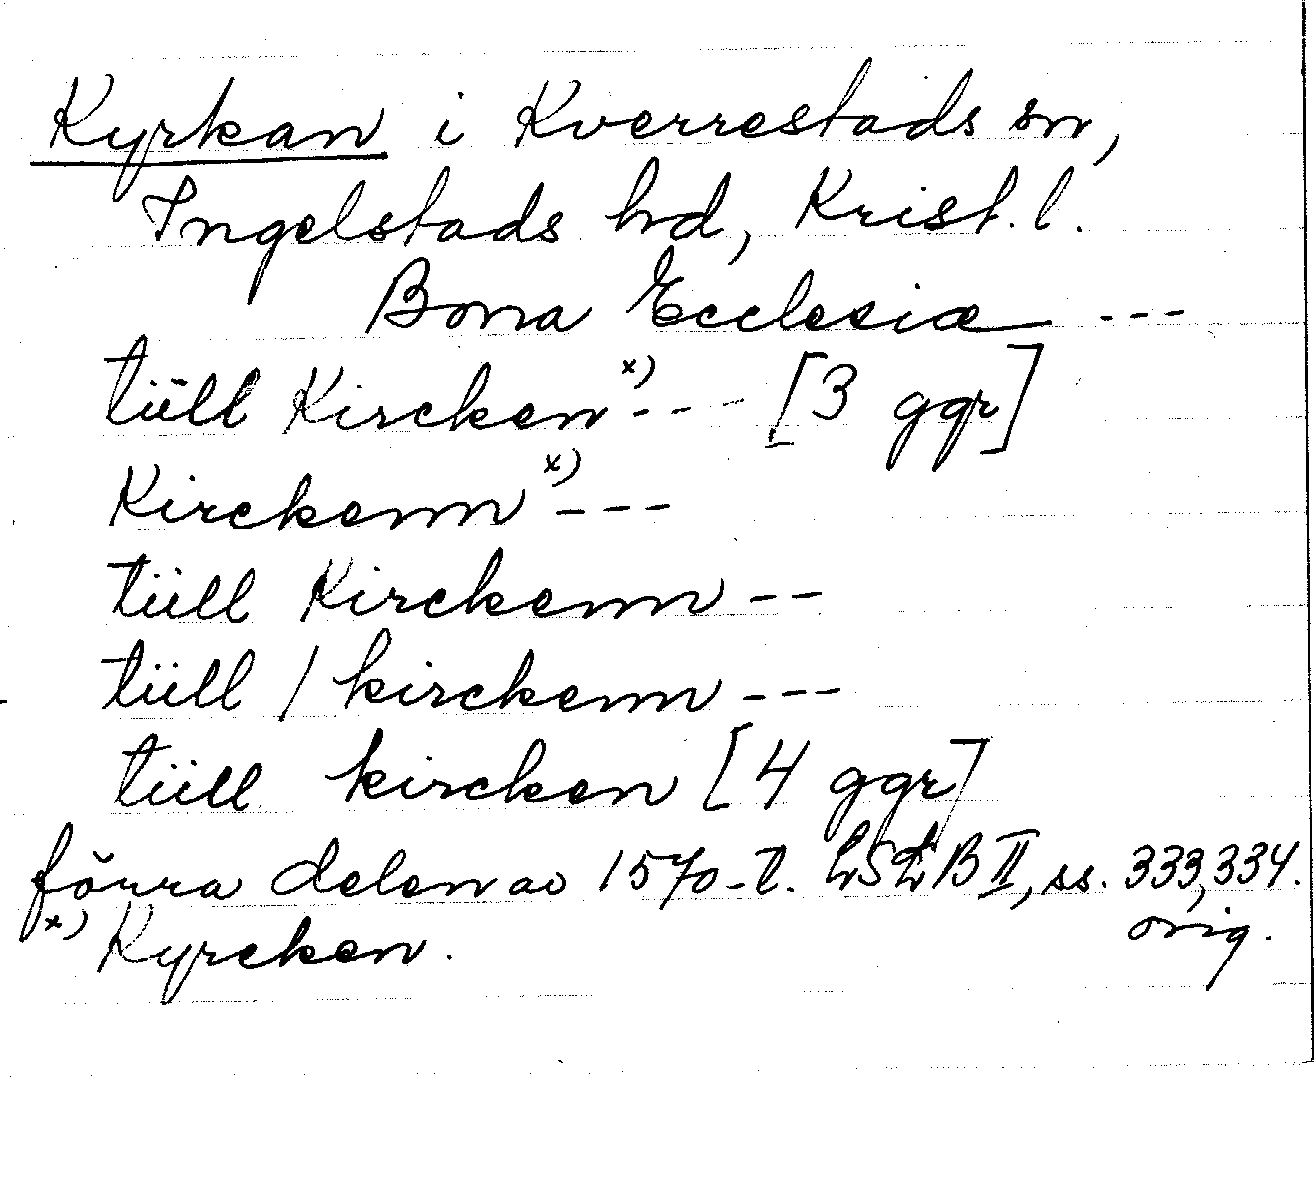 Kyrkan i Kverrestads sn,
Ingelstads hd, Krist. l.
Bona Ecclesiæ ---
tüll Kircken x) --- [3 ggr]
Kirckenn x) ---
tüll Kirckenn --
tüll / kirckenn ---
tüll kircken [4 ggr]
förra delen av 1570-t. LSÆB II, ss. 333, 334.
orig.
x) Kyrcken.